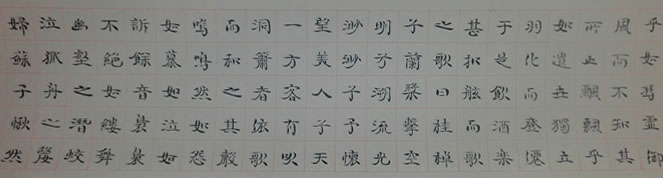 乎如馮虛御
風而不知其
所止飄飄乎
如遺世獨立
羽化而登僊
于是飲酒樂
甚扣舷而歌
之歌曰桂棹
兮蘭槳擊空
明兮溯流光
渺渺兮予懷
望美人兮天
一方客有吹
洞簫者倚歌
而和之其聲
嗚嗚然如怨
如慕如泣如
訴餘音裊裊
不絕如縷舞
幽壑之潛蛟
泣孤舟之嫠
婦蘇子愀然